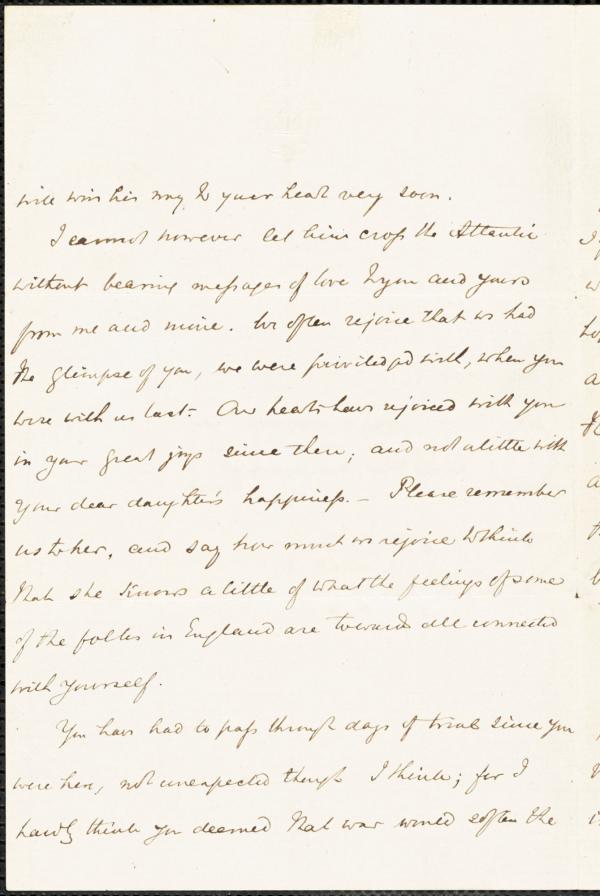 will win his way to your heart very soon.
I cannot however let him cross the Atlantic
without bearing messages of love to you and yours
from me and mine. We often rejoice that we had
the glimpse of you, we were priviledged with, when you
were with us last. Our hearts have rejoiced with you
in your great joys since then; and not a little with
your dear daughter's happiness. - Please remember
us to her, and say how much we rejoice to think
that she knows a little of what the feelings of some
of the folks in England are towards all connected
with yourself.
You have had to pass through days of trial since you
were here, not unexpected though I think; for I
hardly think you deemed that war would soften the